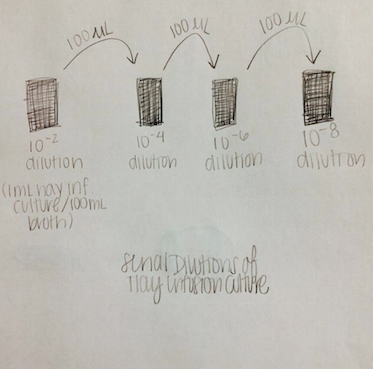 100 µL 100 µL 100 µL
10⁻² 10⁻⁴ 10⁻⁶ 10⁻⁸
dilution dilution dilution dilution
(1mL hay inf.
culture/100mL
broth)
Serial Dilutions of
Hay Infusion Culture